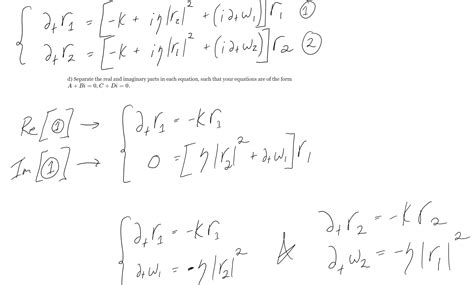 ∂ₜr₁ = [-K + iη|r₂|² + (i∂ₜω₁)]r₁ ①
∂ₜr₂ = [-K + iη|r₁|² + (i∂ₜω₂)]r₂ ②
d) Separate the real and imaginary parts in each equation, such that your equations are of the form
A + Bi = 0, C + Di = 0.
Re[①] → { ∂ₜr₁ = -Kr₁
Im[①] → { 0 = [η|r₂|² + ∂ₜω₁]r₁
∂ₜr₁ = -Kr₁ & ∂ₜr₂ = -Kr₂
∂ₜω₁ = -η|r₂|² ∂ₜω₂ = -η|r₁|²